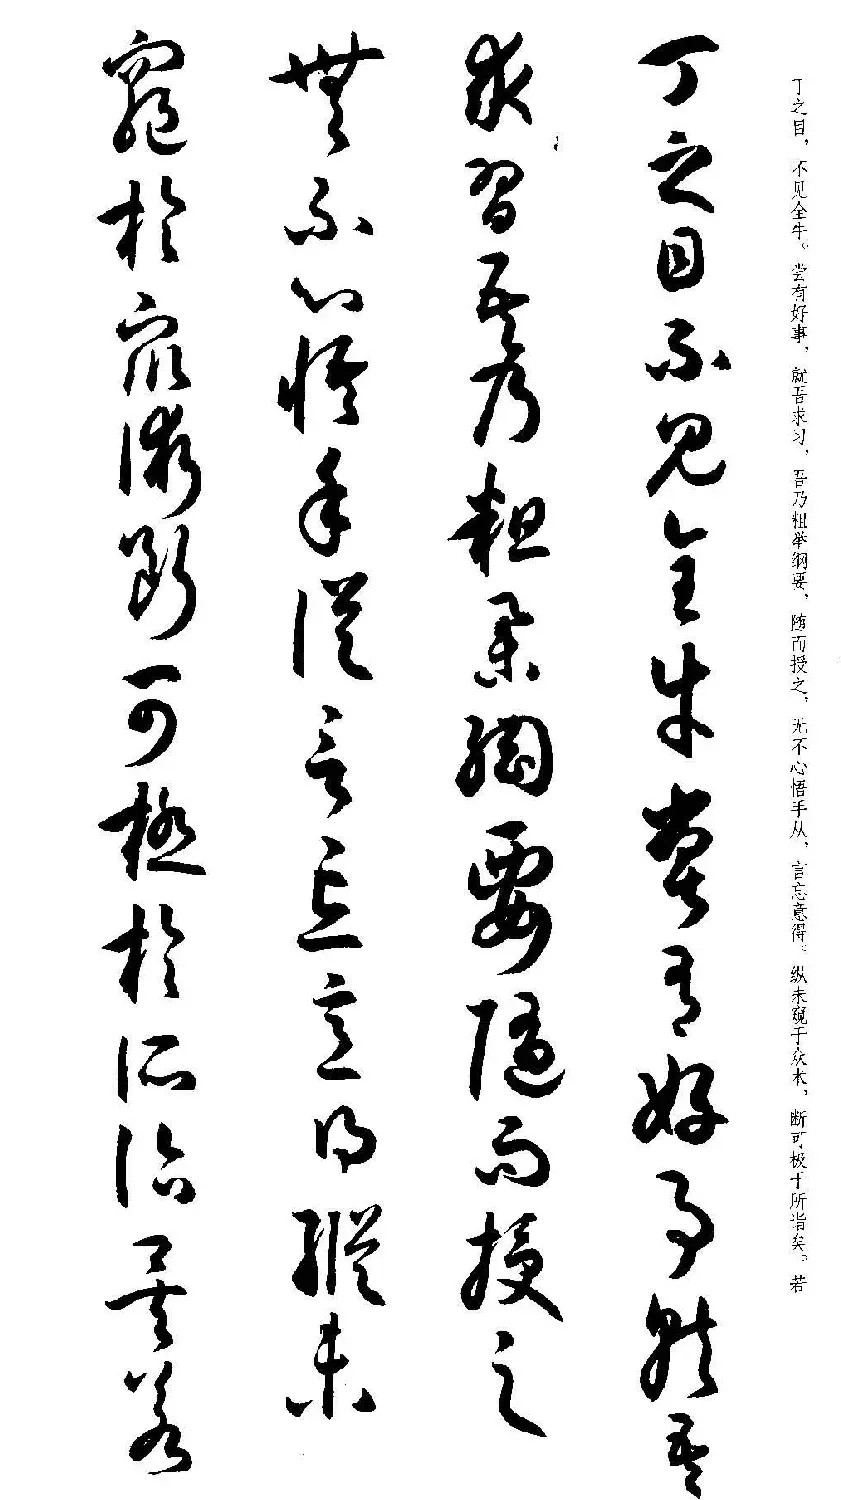 丁之目，不见全牛。尝有好事，就吾求习，吾乃粗举纲要，随而授之，无不心悟手从，言忘意得。纵未窥于众术，断可极于所诣矣。若
丁之目不見全牛嘗有好事就吾
求習吾乃粗舉綱要隨而授之
無不心悟手從言忘意得縱未
窮於眾術斷可極於所詣矣若